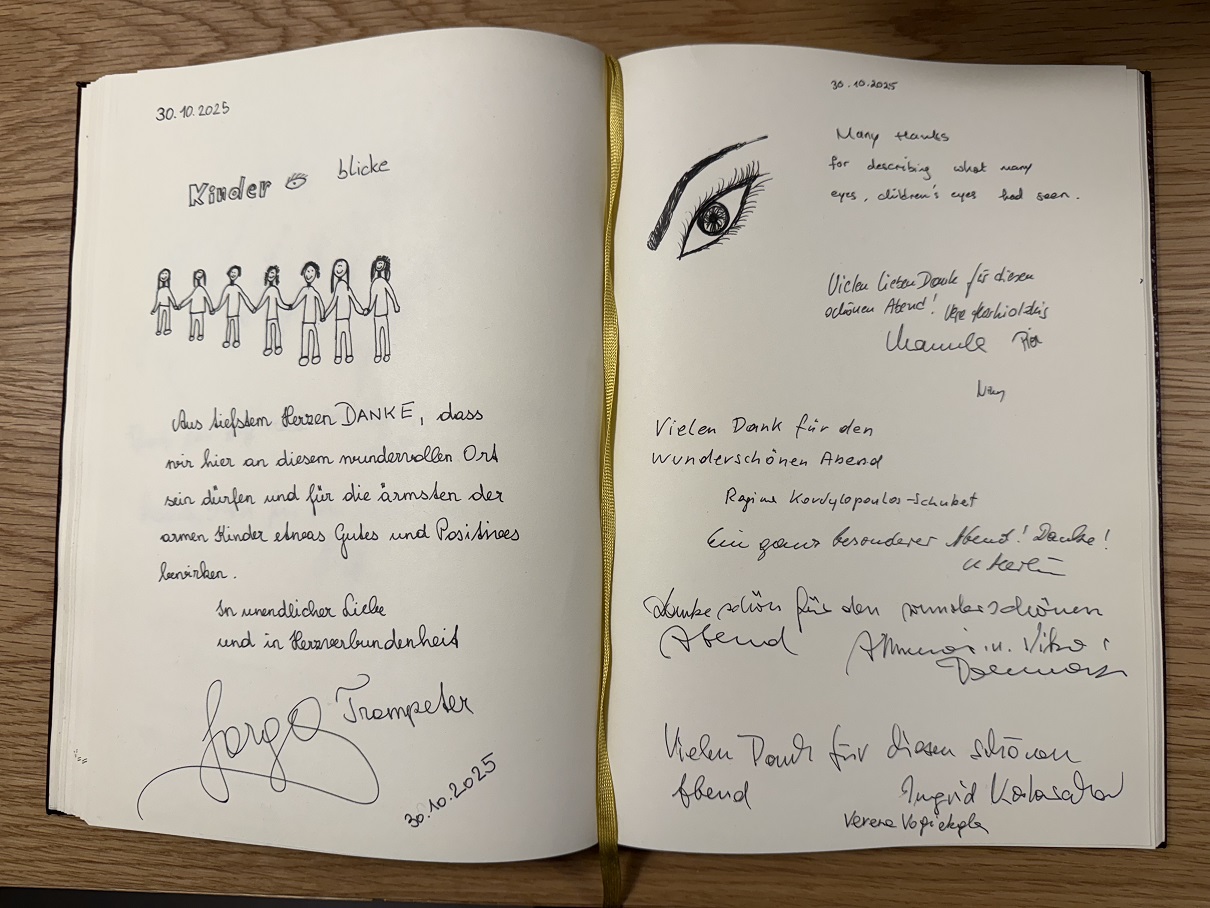 30.10.2025
Kinder blicke
Aus tiefstem Herzen DANKE, dass
wir hier an diesem wundervollen Ort
sein dürfen und für die ärmsten der
armen Kinder etwas Gutes und Positives
bewirken.
In unendlicher Liebe
und in Herzverbundenheit
Trompeter
30.10.2025
30.10.2025
Many thanks
for describing what many
eyes, children's eyes had seen.
Vielen lieben Dank für diesen
schönen Abend!
Manuela
Vielen Dank für den
wunderschönen Abend
Regina Kordylopoulos-Schubet
Ein ganz besonderer Abend! Danke!
Danke schön für den wunderschönen
Abend
Vielen Dank für diesen schönen
Abend Ingrid
Verena